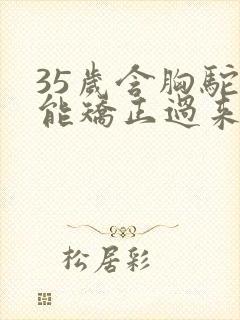 35歲含胸駝
能矯正過來
松居彩